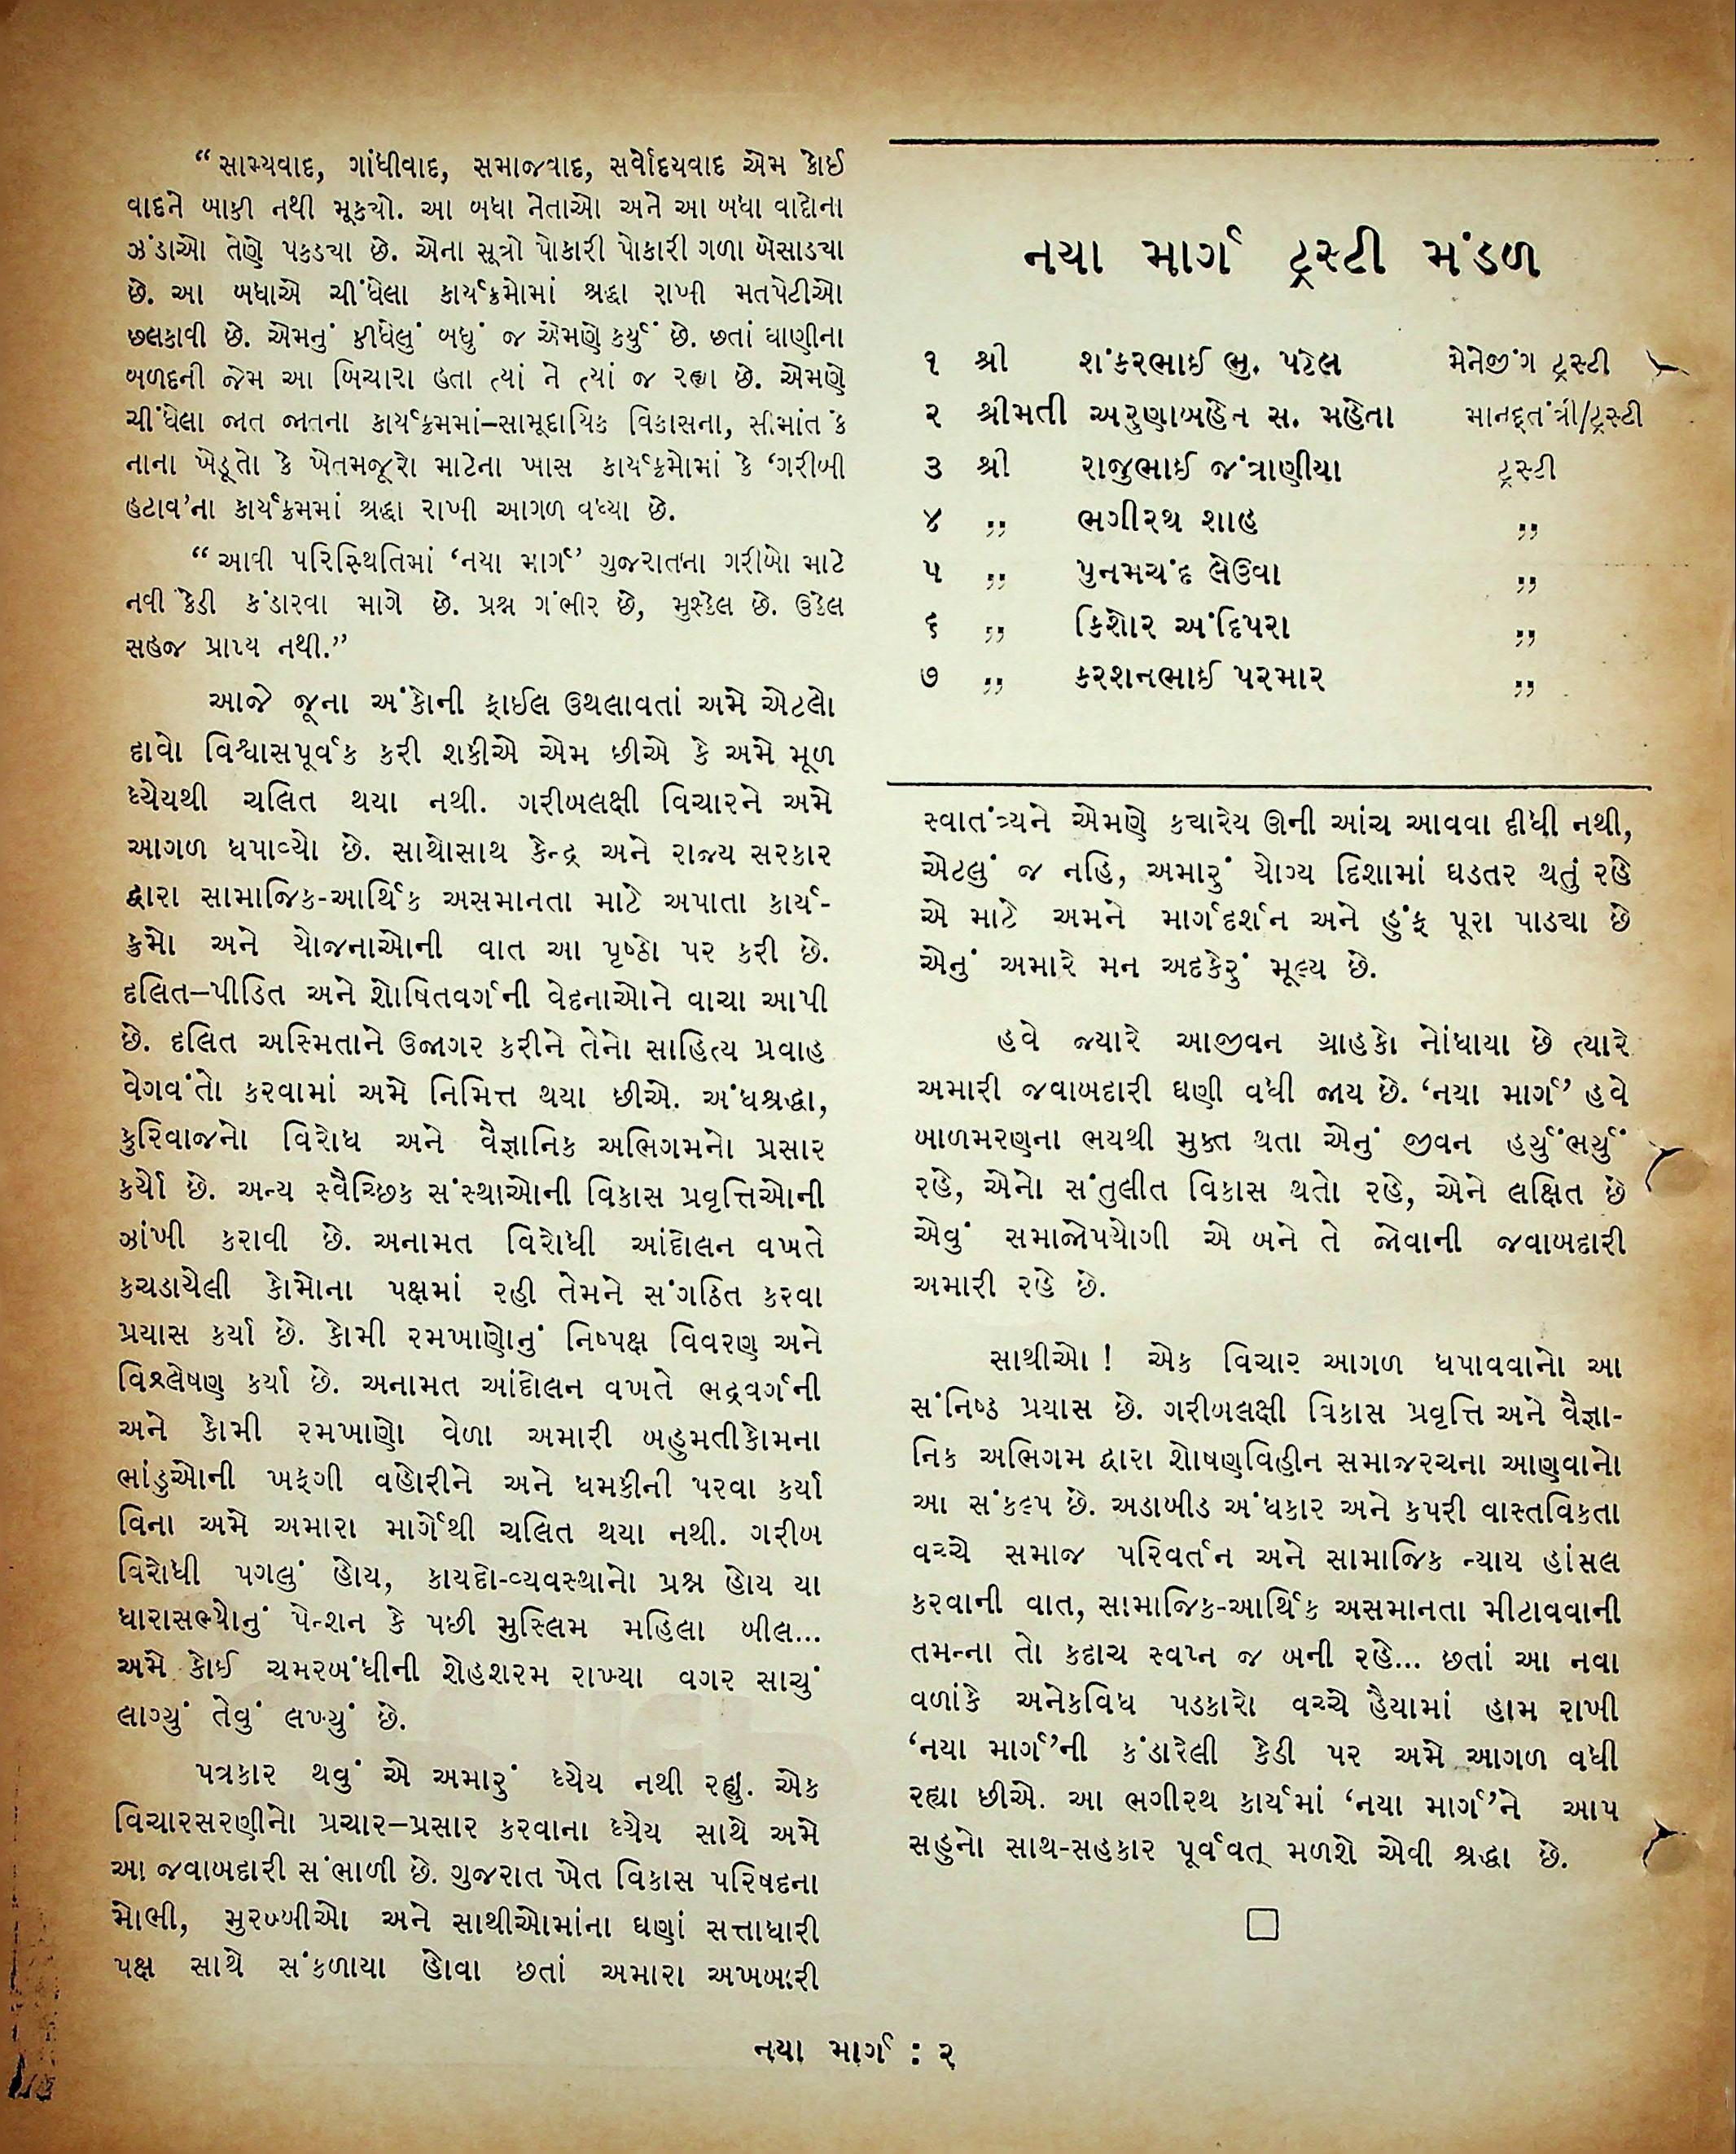 “સામ્યવાદ, ગાંધીવાદ, સમાજવાદ, સર્વોદયવાદ એમ કોઈ
વાદને બાકી નથી મૂક્યો. આ બધા નેતાઓ અને આ બધા વાદોના
ઝંડાઓ તેણે પકડ્યા છે. એના સૂત્રો પોકારી પોકારી ગળા બેસાડ્યા
છે. આ બધાએ ચીંધેલા કાર્યક્રમોમાં શ્રદ્ધા રાખી મતપેટીઓ
છલકાવી છે. એમનું કીધેલું બધું જ એમણે કર્યું છે. છતાં ઘાણીના
બળદની જેમ આ બિચારા હતા ત્યાં ને ત્યાં જ રહ્યા છે. એમણે
ચીંધેલા જાત જાતના કાર્યક્રમમાં–સામૂદાયિક વિકાસના, સીમાંત કે
નાના ખેડૂતો કે ખેતમજૂરો માટેના ખાસ કાર્યક્રમોમાં કે ‘ગરીબી
હટાવ’ના કાર્યક્રમમાં શ્રદ્ધા રાખી આગળ વધ્યા છે.
“આવી પરિસ્થિતિમાં ‘નયા માર્ગ’ ગુજરાતના ગરીબો માટે
નવી કેડી કંડારવા માગે છે. પ્રશ્ન ગંભીર છે, મુશ્કેલ છે. ઉકેલ
સહજ પ્રાપ્ય નથી.”
આજે જૂના અંકોની ફાઈલ ઉથલાવતાં અમે એટલો
દાવો વિશ્વાસપૂર્વક કરી શકીએ એમ છીએ કે અમે મૂળ
ધ્યેયથી ચલિત થયા નથી. ગરીબલક્ષી વિચારને અમે
આગળ ધપાવ્યો છે. સાથોસાથ કેન્દ્ર અને રાજ્ય સરકાર
દ્વારા સામાજિક-આર્થિક અસમાનતા માટે અપાતા કાર્ય-
ક્રમો અને યોજનાઓની વાત આ પૃષ્ઠો પર કરી છે.
દલિત–પીડિત અને શોષિતવર્ગની વેદનાઓને વાચા આપી
છે. દલિત અસ્મિતાને ઉજાગર કરીને તેનો સાહિત્ય પ્રવાહ
વેગવંતો કરવામાં અમે નિમિત્ત થયા છીએ. અંધશ્રદ્ધા,
કુરિવાજનો વિરોધ અને વૈજ્ઞાનિક અભિગમનો પ્રસાર
કર્યો છે. અન્ય સ્વૈચ્છિક સંસ્થાઓની વિકાસ પ્રવૃત્તિઓની
ઝાંખી કરાવી છે. અનામત વિરોધી આંદોલન વખતે
કચડાયેલી કોમોના પક્ષમાં રહી તેમને સંગઠિત કરવા
પ્રયાસ કર્યા છે. કોમી રમખાણોનું નિષ્પક્ષ વિવરણ અને
વિશ્લેષણ કર્યા છે. અનામત આંદોલન વખતે ભદ્રવર્ગની
અને કોમી રમખાણો વેળા અમારી બહુમતીકોમના
ભાંડુઓની ખફગી વહોરીને અને ધમકીની પરવા કર્યા
વિના અમે અમારા માર્ગેથી ચલિત થયા નથી. ગરીબ
વિરોધી પગલું હોય, કાયદો-વ્યવસ્થાનો પ્રશ્ન હોય યા
ધારાસભ્યોનું પેન્શન કે પછી મુસ્લિમ મહિલા બીલ...
અમે કોઈ ચમરબંધીની શેહશરમ રાખ્યા વગર સાચું
લાગ્યું તેવું લખ્યું છે.
પત્રકાર થવું એ અમારું ધ્યેય નથી રહ્યું. એક
વિચારસરણીનો પ્રચાર–પ્રસાર કરવાના ધ્યેય સાથે અમે
આ જવાબદારી સંભાળી છે. ગુજરાત ખેત વિકાસ પરિષદના
મોભી, મુરબ્બીઓ અને સાથીઓમાંના ઘણાં સત્તાધારી
પક્ષ સાથે સંકળાયા હોવા છતાં અમારા અખબારી
નયા માર્ગ ટ્રસ્ટી મંડળ
૧ શ્રી શંકરભાઈ ભુ. પટેલ મેનેજીંગ ટ્રસ્ટી
૨ શ્રીમતી અરુણાબહેન સ. મહેતા માનદ્‌તંત્રી/ટ્રસ્ટી
૩ શ્રી રાજુભાઈ જંત્રાણીયા ટ્રસ્ટી
૪ ,, ભગીરથ શાહ ,,
૫ ,, પુનમચંદ લેઉવા ,,
૬ ,, કિશોર અંદિપરા ,,
૭ ,, કરશનભાઈ પરમાર ,,
સ્વાતંત્ર્યને એમણે ક્યારેય ઊની આંચ આવવા દીધી નથી,
એટલું જ નહિ, અમારું યોગ્ય દિશામાં ઘડતર થતું રહે
એ માટે અમને માર્ગદર્શન અને હુંફ પૂરા પાડ્યા છે
એનું અમારે મન અદકેરું મૂલ્ય છે.
હવે જ્યારે આજીવન ગ્રાહકો નોંધાયા છે ત્યારે
અમારી જવાબદારી ઘણી વધી જાય છે. ‘નયા માર્ગ’ હવે
બાળમરણના ભયથી મુક્ત થતા એનું જીવન હર્યુંભર્યું
રહે, એનો સંતુલીત વિકાસ થતો રહે, એને લક્ષિત છે
એવું સમાજોપયોગી એ બને તે જોવાની જવાબદારી
અમારી રહે છે.
સાથીઓ ! એક વિચાર આગળ ધપાવવાનો આ
સંનિષ્ઠ પ્રયાસ છે. ગરીબલક્ષી વિકાસ પ્રવૃત્તિ અને વૈજ્ઞા-
નિક અભિગમ દ્વારા શોષણવિહીન સમાજરચના આણવાનો
આ સંકલ્પ છે. અડાબીડ અંધકાર અને કપરી વાસ્તવિકતા
વચ્ચે સમાજ પરિવર્તન અને સામાજિક ન્યાય હાંસલ
કરવાની વાત, સામાજિક-આર્થિક અસમાનતા મીટાવવાની
તમન્ના તો કદાચ સ્વપ્ન જ બની રહે... છતાં આ નવા
વળાંકે અનેકવિધ પડકારો વચ્ચે હૈયામાં હામ રાખી
‘નયા માર્ગ’ની કંડારેલી કેડી પર અમે આગળ વધી
રહ્યા છીએ. આ ભગીરથ કાર્યમાં ‘નયા માર્ગ’ને આપ
સહુનો સાથ-સહકાર પૂર્વવત્ મળશે એવી શ્રદ્ધા છે.
નયા માર્ગ : ૨